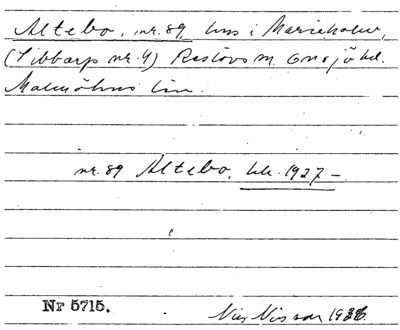 Altebo, nr. 89, hus i Marieholm,
(Sibbarp nr. 4) Reslövs sn. Onsjö hd.
Malmöhus län.
nr. 89 Altebo, bb. 1927 -
Nr 5715.
Nils Nilsson 1936